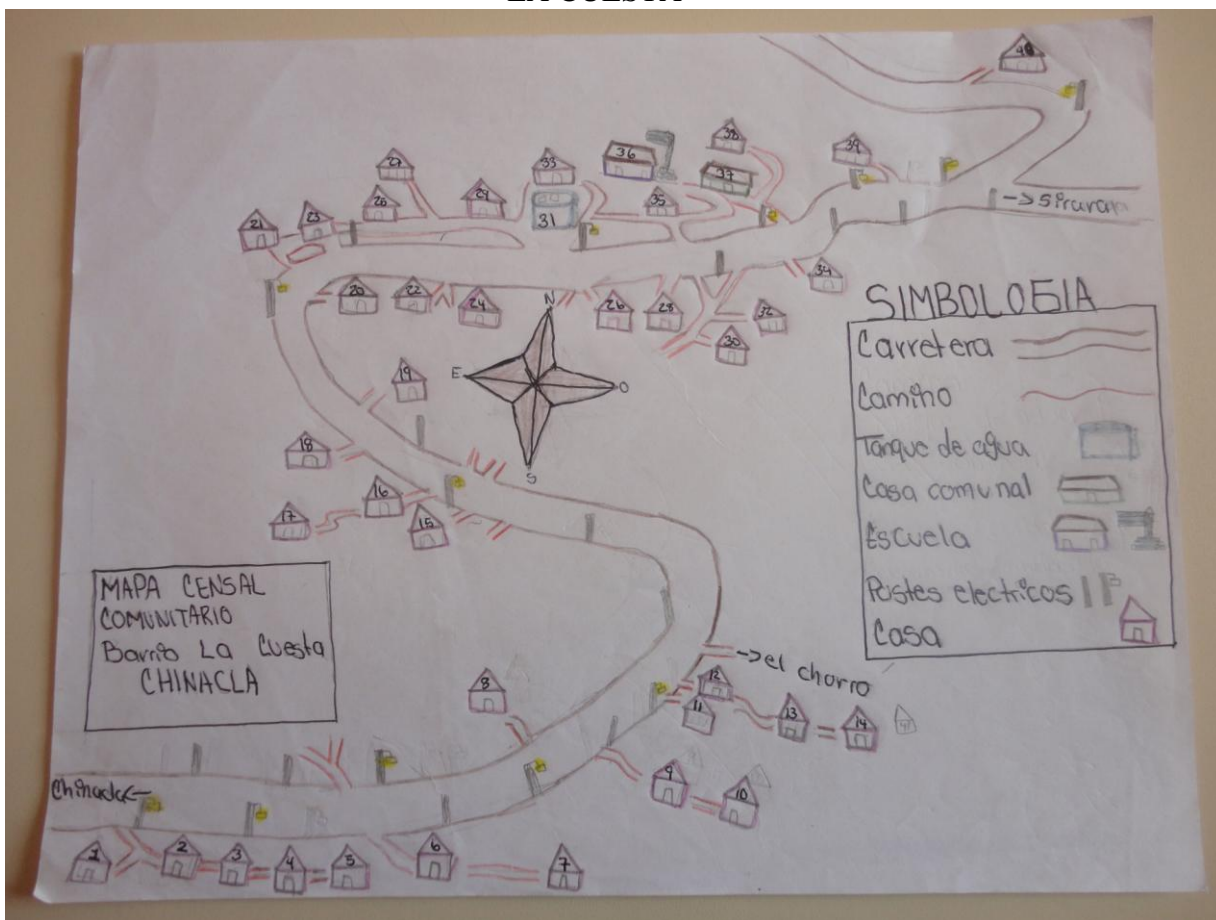 LA CUESTA
40
38
39
36
37
33
27
35
29
25
31
23
21
34
20
22
24
26
28
32
30
N
E
O
S
19
18
16
17
15
SIMBOLOGIA
Carretera
Camino
Tanque de agua
Casa comunal
Escuela
Postes electricos
Casa
MAPA CENSAL
COMUNITARIO
Barrio La Cuesta
CHINACLA
->el chorro
12
11
13
14
8
9
10
Chinacla<-
1
2
3
4
5
6
7